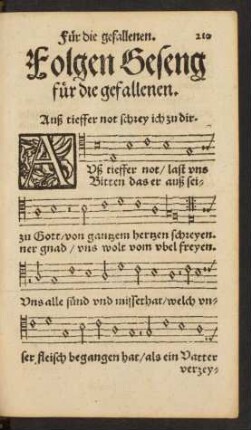 Für die gefallenen. 210
Folgen Geseng
für die gefallenen.
Auß tieffer not schrey ich zu dir.
AVß tieffer not / last vns
Bitten das er auß sei-
zu Gott / von gantzem hertzen schreyen.
ner gnad / vns wolt vom vbel freyen.
Vns alle sünd vnd missethat / welch vn-
ser fleisch begangen hat / als ein Vatter
verzey-